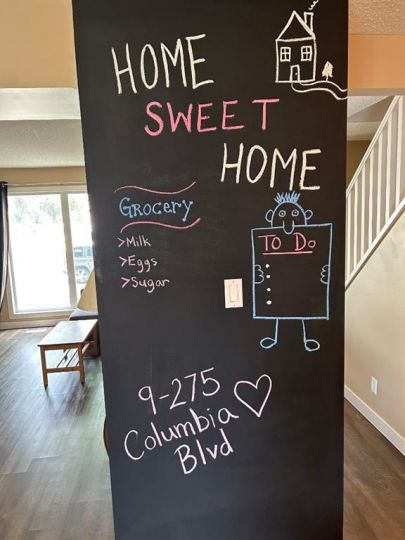 HOME
SWEET
HOME
Grocery
>Milk
>Eggs
>Sugar
To Do
9-275
Columbia
Blvd